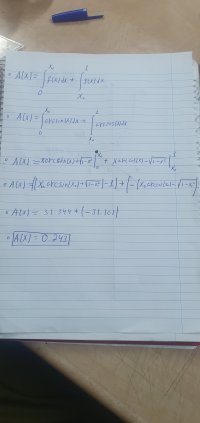 • A(X) = ∫₀^{x₀} f(x)dx + ∫_{x₀}^{1} g(x)dx
• A(X) = ∫₀^{x₀} arcsin(x)dx + ∫_{x₀}^{1} arccos(x)dx
• A(X) = xarcsin(x)+√1-x² |₀^{x₀} + xarccos(x)-√1-x² |_{x₀}^{1}
• A(X) = [X₀ arcsin(X₀)+√1-x² -1] + [-(X₀ arccos(x₀)-√1-x²)]
• A(X) = 31.344 + (-31.101)
• A(X) = 0.243